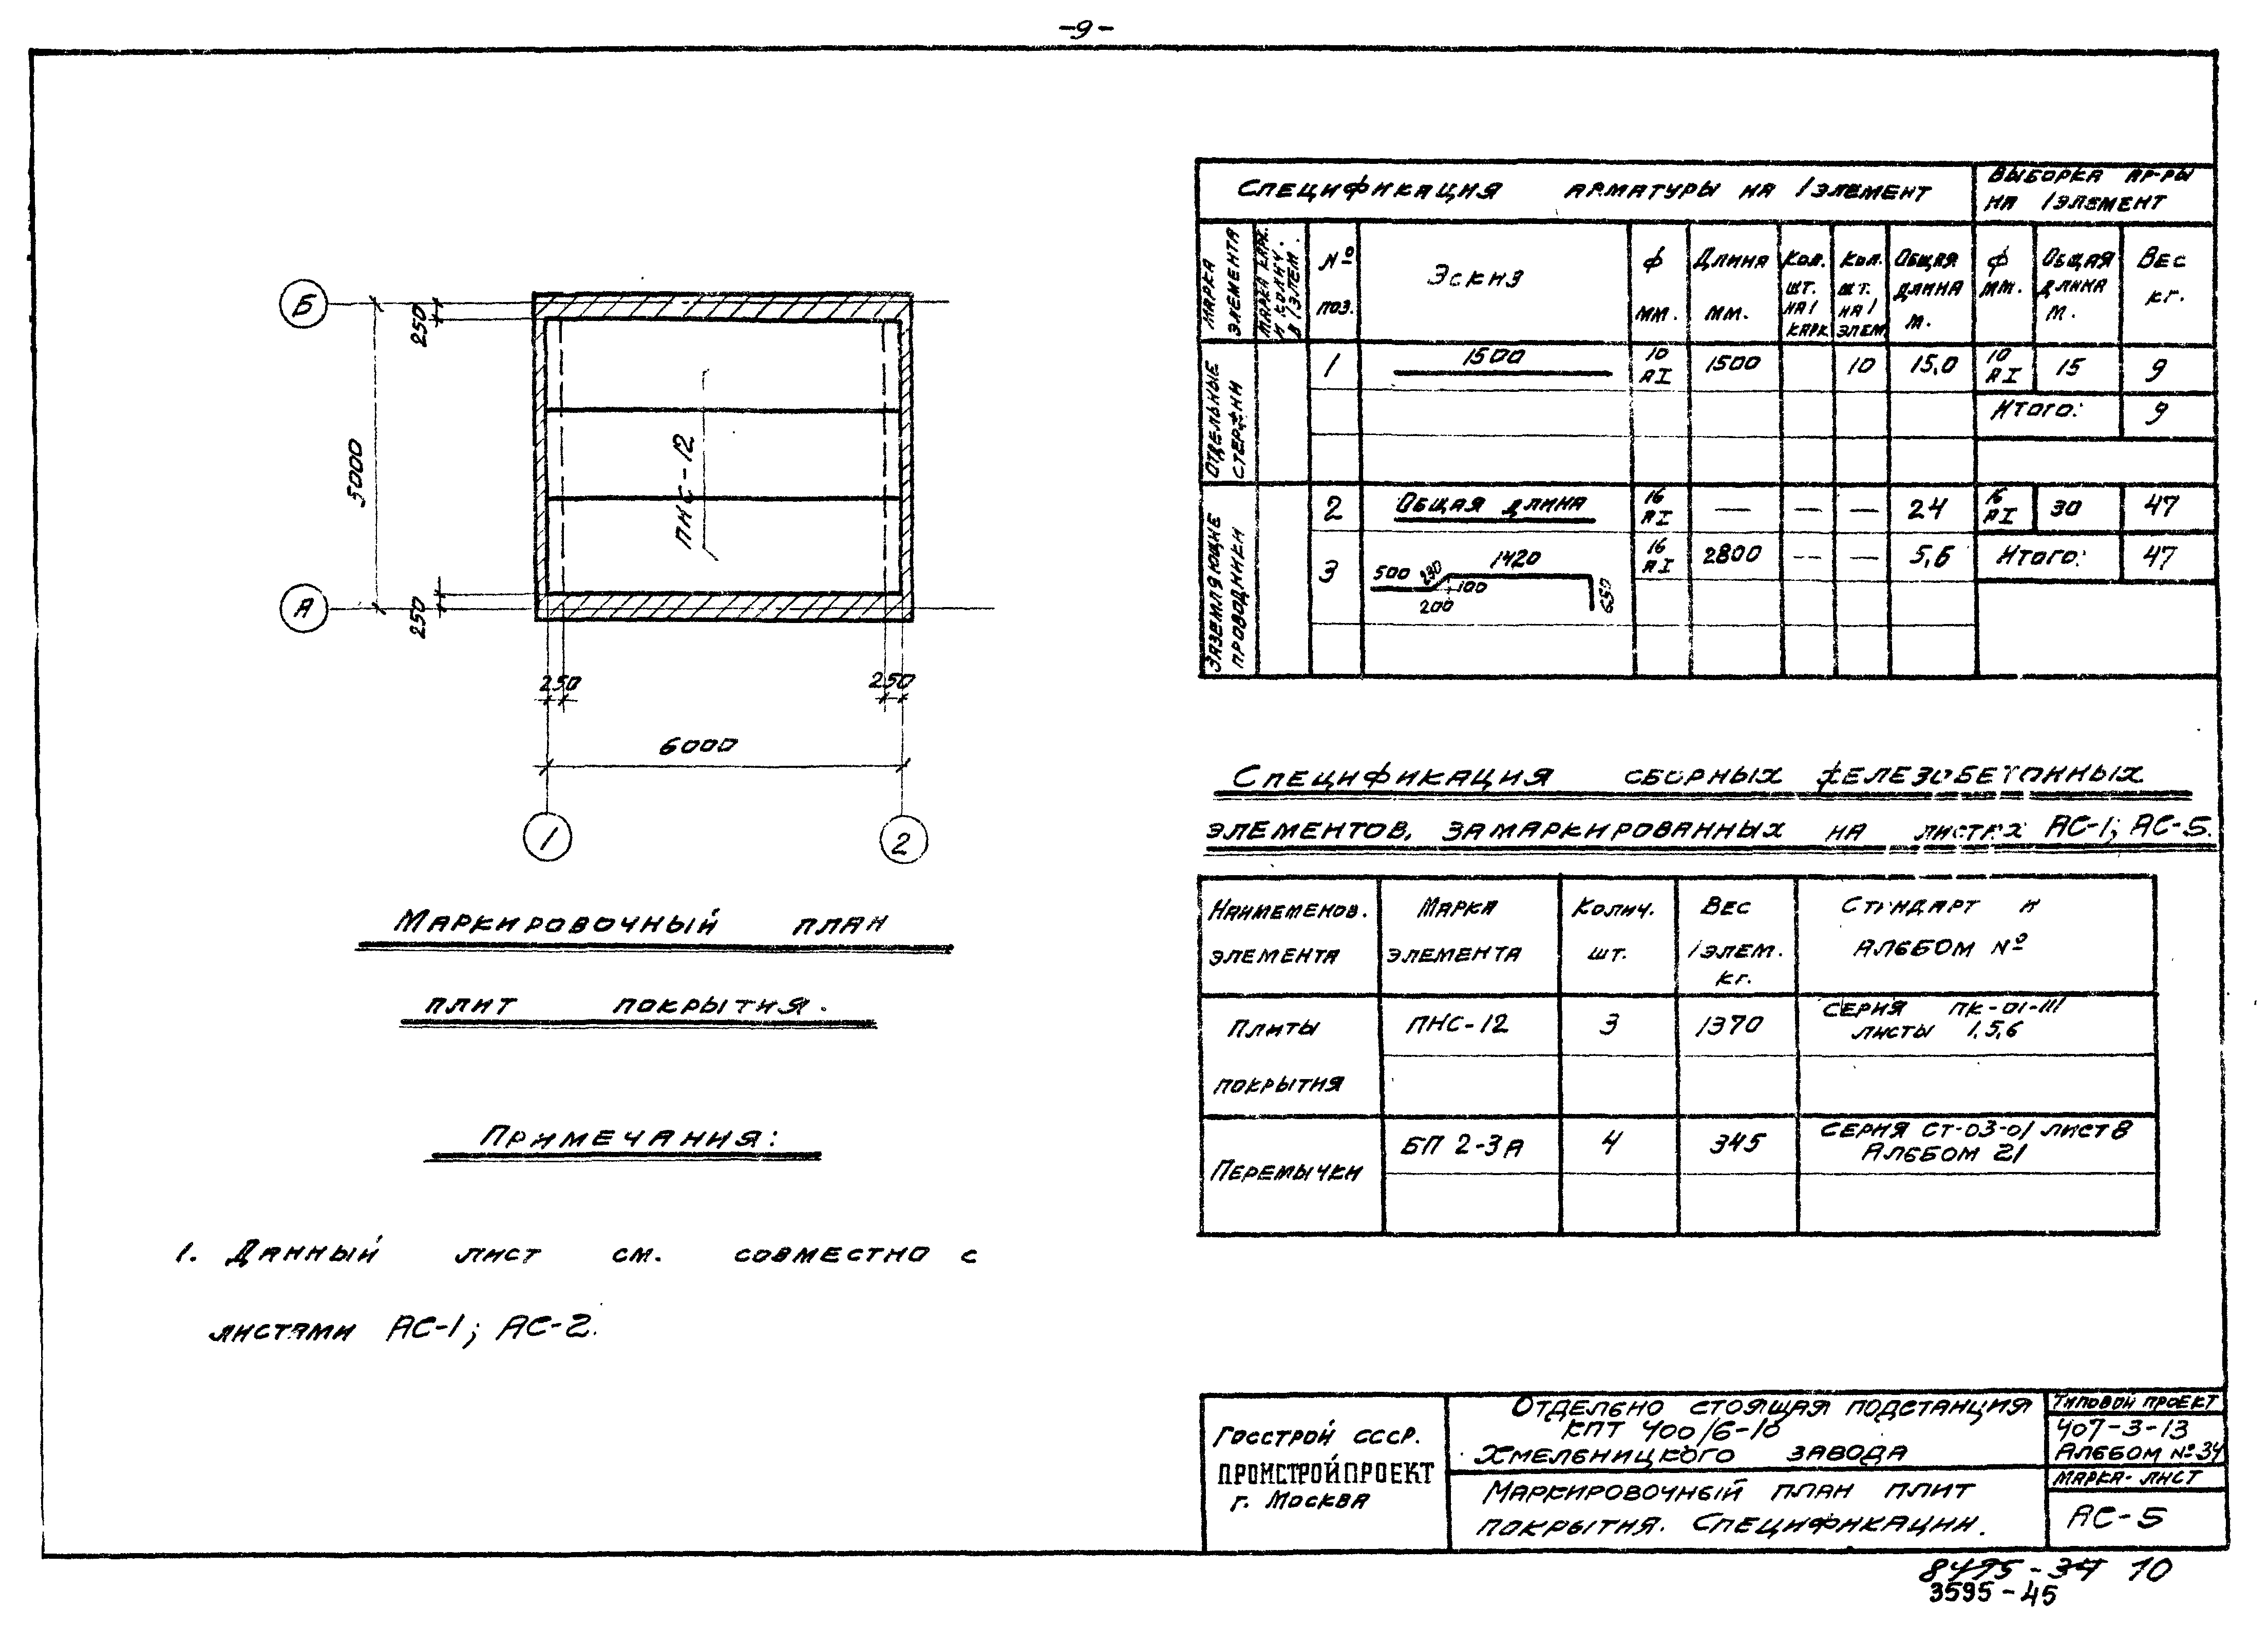 -9-
Б
А
250
5000
250
ПНС-12
250
250
6000
1
2
Маркировочный план
плит покрытия.
Примечания:
1. Данный лист см. совместно с
листами АС-1; АС-2.
Спецификация арматуры на 1 элемент
Выборка ар-ры
на 1 элемент
Марка элемента
Марка карк. и колич. в 1 элем.
№ поз.
Эскиз
ф мм.
Длина мм.
Кол. шт. на 1 карк.
Кол. шт. на 1 элем.
Общая длина м.
ф мм.
Общая длина м.
Вес кг.
Отдельные стержни
1 1500 10 АI 1500 10 15,0 10 АI 15 9
Итого: 9
Заземляющие проводники
2 Общая длина 16 АI — — — 24 16 АI 30 47
3 500 230 100 200 1420 650 16 АI 2800 -- — 5,6 Итого: 47
Спецификация сборных железобетонных
элементов, замаркированных на листах АС-1; АС-5.
Наименов. элемента
Марка элемента
Колич. шт.
Вес 1 элем. кг.
Стандарт и альбом №
Плиты покрытия ПНС-12 3 1370 серия ПК-01-111 листы 1,5,6
Перемычки БП 2-3А 4 345 серия СТ-03-01 лист 8 Альбом 21
Госстрой СССР.
ПРОМСТРОЙПРОЕКТ
г. Москва
Отдельно стоящая подстанция
КПТ 400/6-10
Хмельницкого завода
Маркировочный план плит
покрытия. Спецификации.
Типовой проект
407-3-13
Альбом № 34
Марка-лист
АС-5
8495-34 10
3595-45